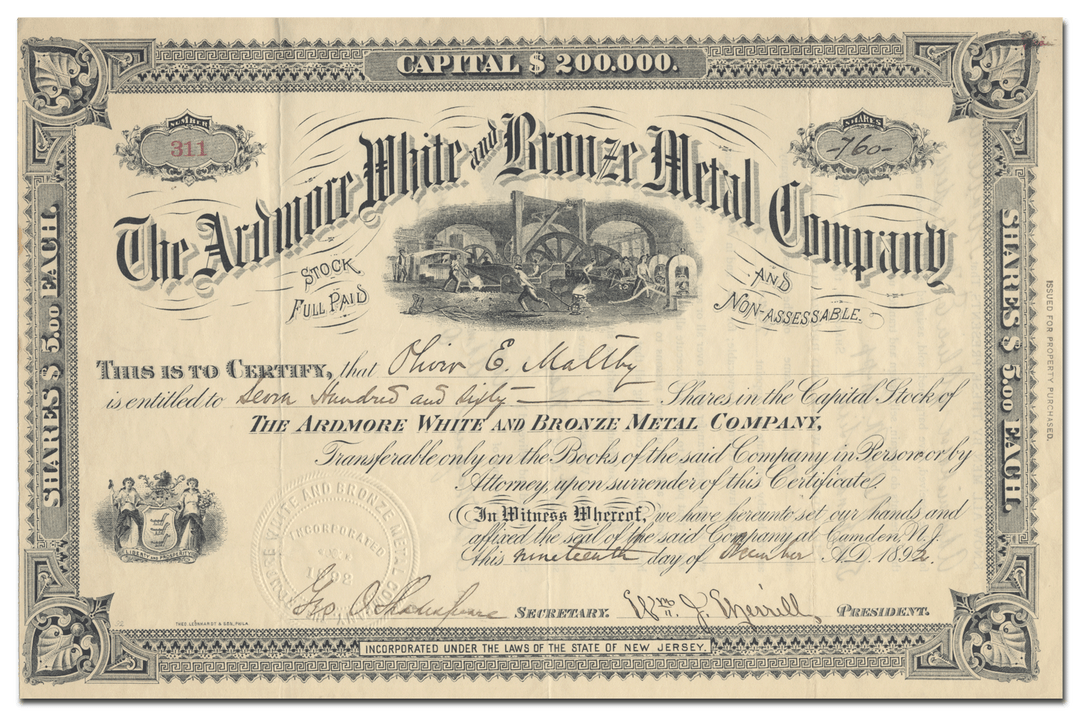 CAPITAL $ 200.000.
NUMBER
311
SHARES
-760-
The Ardmore White and Bronze Metal Company
STOCK
FULL PAID
AND
NON-ASSESSABLE.
SHARES $ 5.00 EACH.
SHARES $ 5.00 EACH.
ISSUED FOR PROPERTY PURCHASED.
THIS IS TO CERTIFY, that Oliver E. Maltby
is entitled to Seven Hundred and Sixty Shares in the Capital Stock of
THE ARDMORE WHITE AND BRONZE METAL COMPANY,
Transferable only on the Books of the said Company in Person or by
Attorney, upon surrender of this Certificate.
In Witness Whereof, we have hereunto set our hands and
affixed the seal of the said Company at Camden, N.J.
this nineteenth day of November A.D. 1892.
LIBERTY AND PROSPERITY
WHITE AND BRONZE METAL
INCORPORATED
Geo. O. Shakespeare SECRETARY. Wm. J. Merrill PRESIDENT.
THEO. LEONHARDT & SON, PHILA.
INCORPORATED UNDER THE LAWS OF THE STATE OF NEW JERSEY.